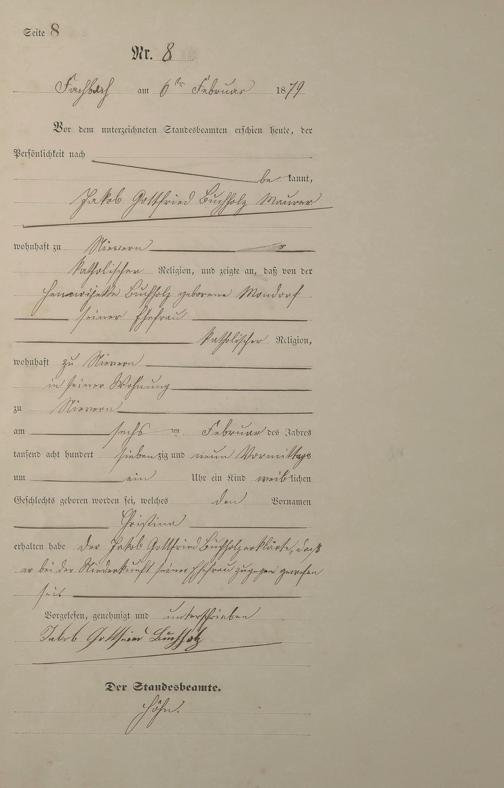 Seite 8
Nr. 8
Fachbach am 6ten Februar 1879
Vor dem unterzeichneten Standesbeamten erschien heute, der
Persönlichkeit nach
be kannt,
Jakob Gottfried Buchholz Maurer
wohnhaft zu Nievern
katholischer Religion, und zeigte an, daß von der
Henriette Buchholz geborene Mondorf
seiner Ehefrau
katholischer Religion,
wohnhaft zu Nievern
in seiner Wohnung
zu Nievern
am sechs ten Februar des Jahres
tausend acht hundert siebenzig und neun Vormittags
um ein Uhr ein Kind weiblichen
Geschlechts geboren worden sei, welches den Vornamen
Christina
erhalten habe der Jakob Gottfried Buchholz erklärte, daß
er bei der Niederkunft seiner Ehefrau zugegen gewesen
sei
Vorgelesen, genehmigt und unterschrieben
Jakob Gottfried Buchholz
Der Standesbeamte.
Höhn.